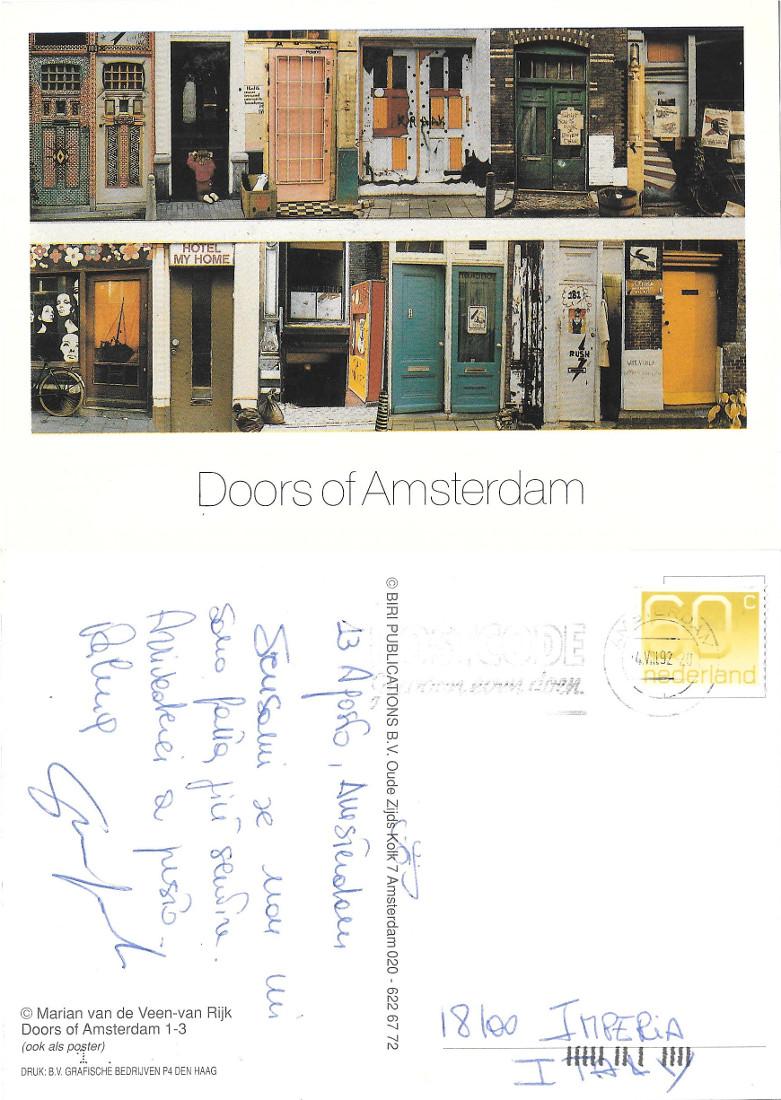 HOTEL
MY HOME
RUSH
Doors of Amsterdam
© BIRI PUBLICATIONS B.V. Oude Zijds Kolk 7 Amsterdam 020 - 622 67 72
60 c
nederland
AMSTERDAM
POSTCODE
13 Agosto, Amsterdam
Scusami se non mi
sono fatta più sentire.
Arrivederci a presto..
© Marian van de Veen-van Rijk
Doors of Amsterdam 1-3
(ook als poster)
DRUK: B.V. GRAFISCHE BEDRIJVEN P4 DEN HAAG
18100 IMPERIA
ITALY